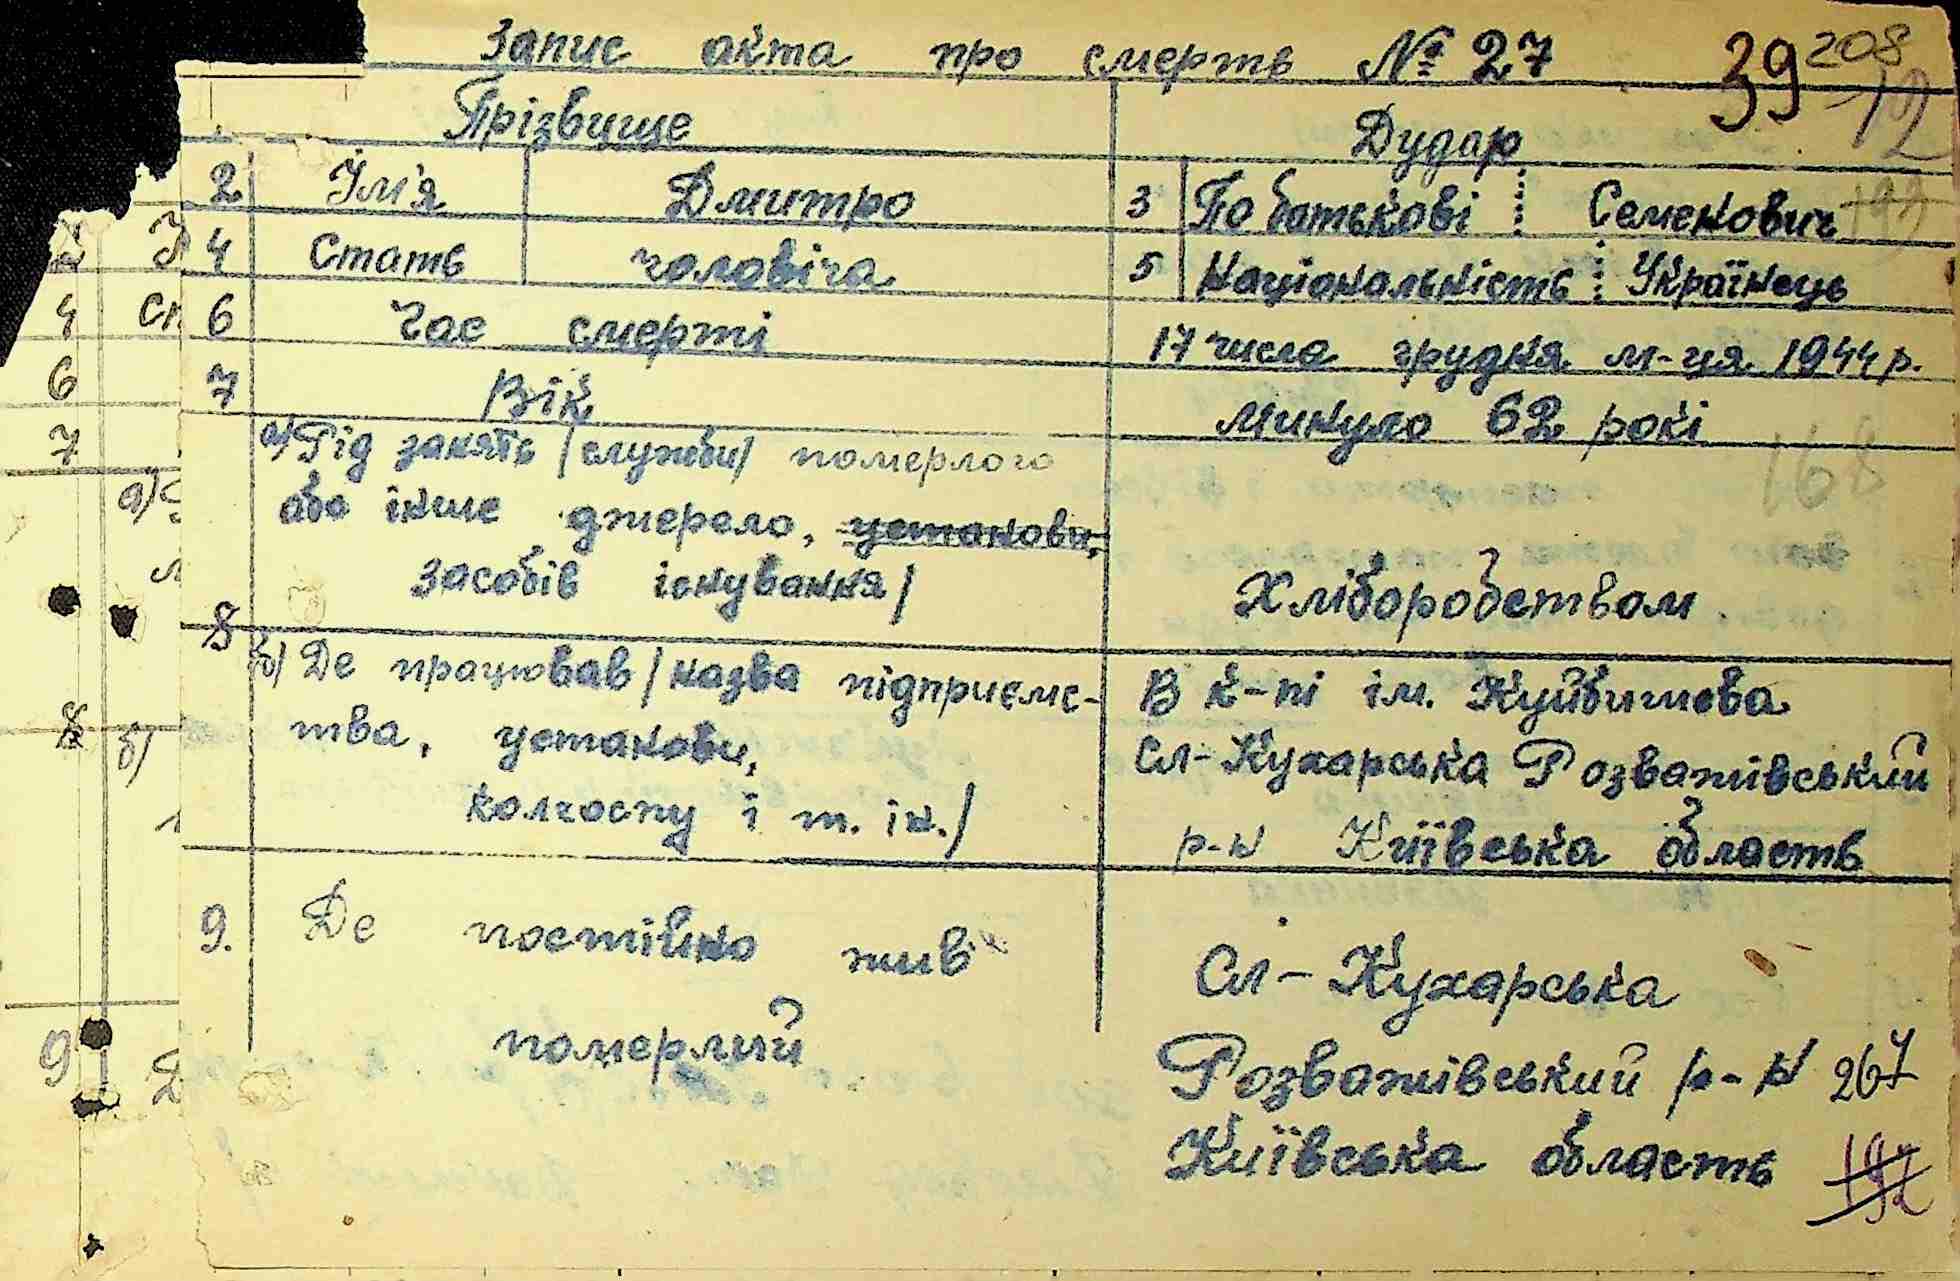 Запис акта про смерть № 27 39 208
Прізвище Дудар
2 Ім'я Дмитро 3 По батькові Семенович
4 Стать чоловіча 5 Національність Українець
6 Час смерті 17 числа грудня м-ця 1944 р.
7 Вік минуло 62 рокі
168
а) Рід занять /служби/ померлого
або інше джерело, установи,
засобів існування/ Хліборобством
8
б) Де працював /назва підприємс- В к-пі ім. Куйбишева
тва, установи, Сл-Кухарська Розважівський
колгоспу і т. ін./ р-н Київська область
9. Де постійно жив Сл-Кухарська
померлий Розважівський р-н 267
Київська область 192
2
4 Ст
6
7
а)
8 б)
9 Д